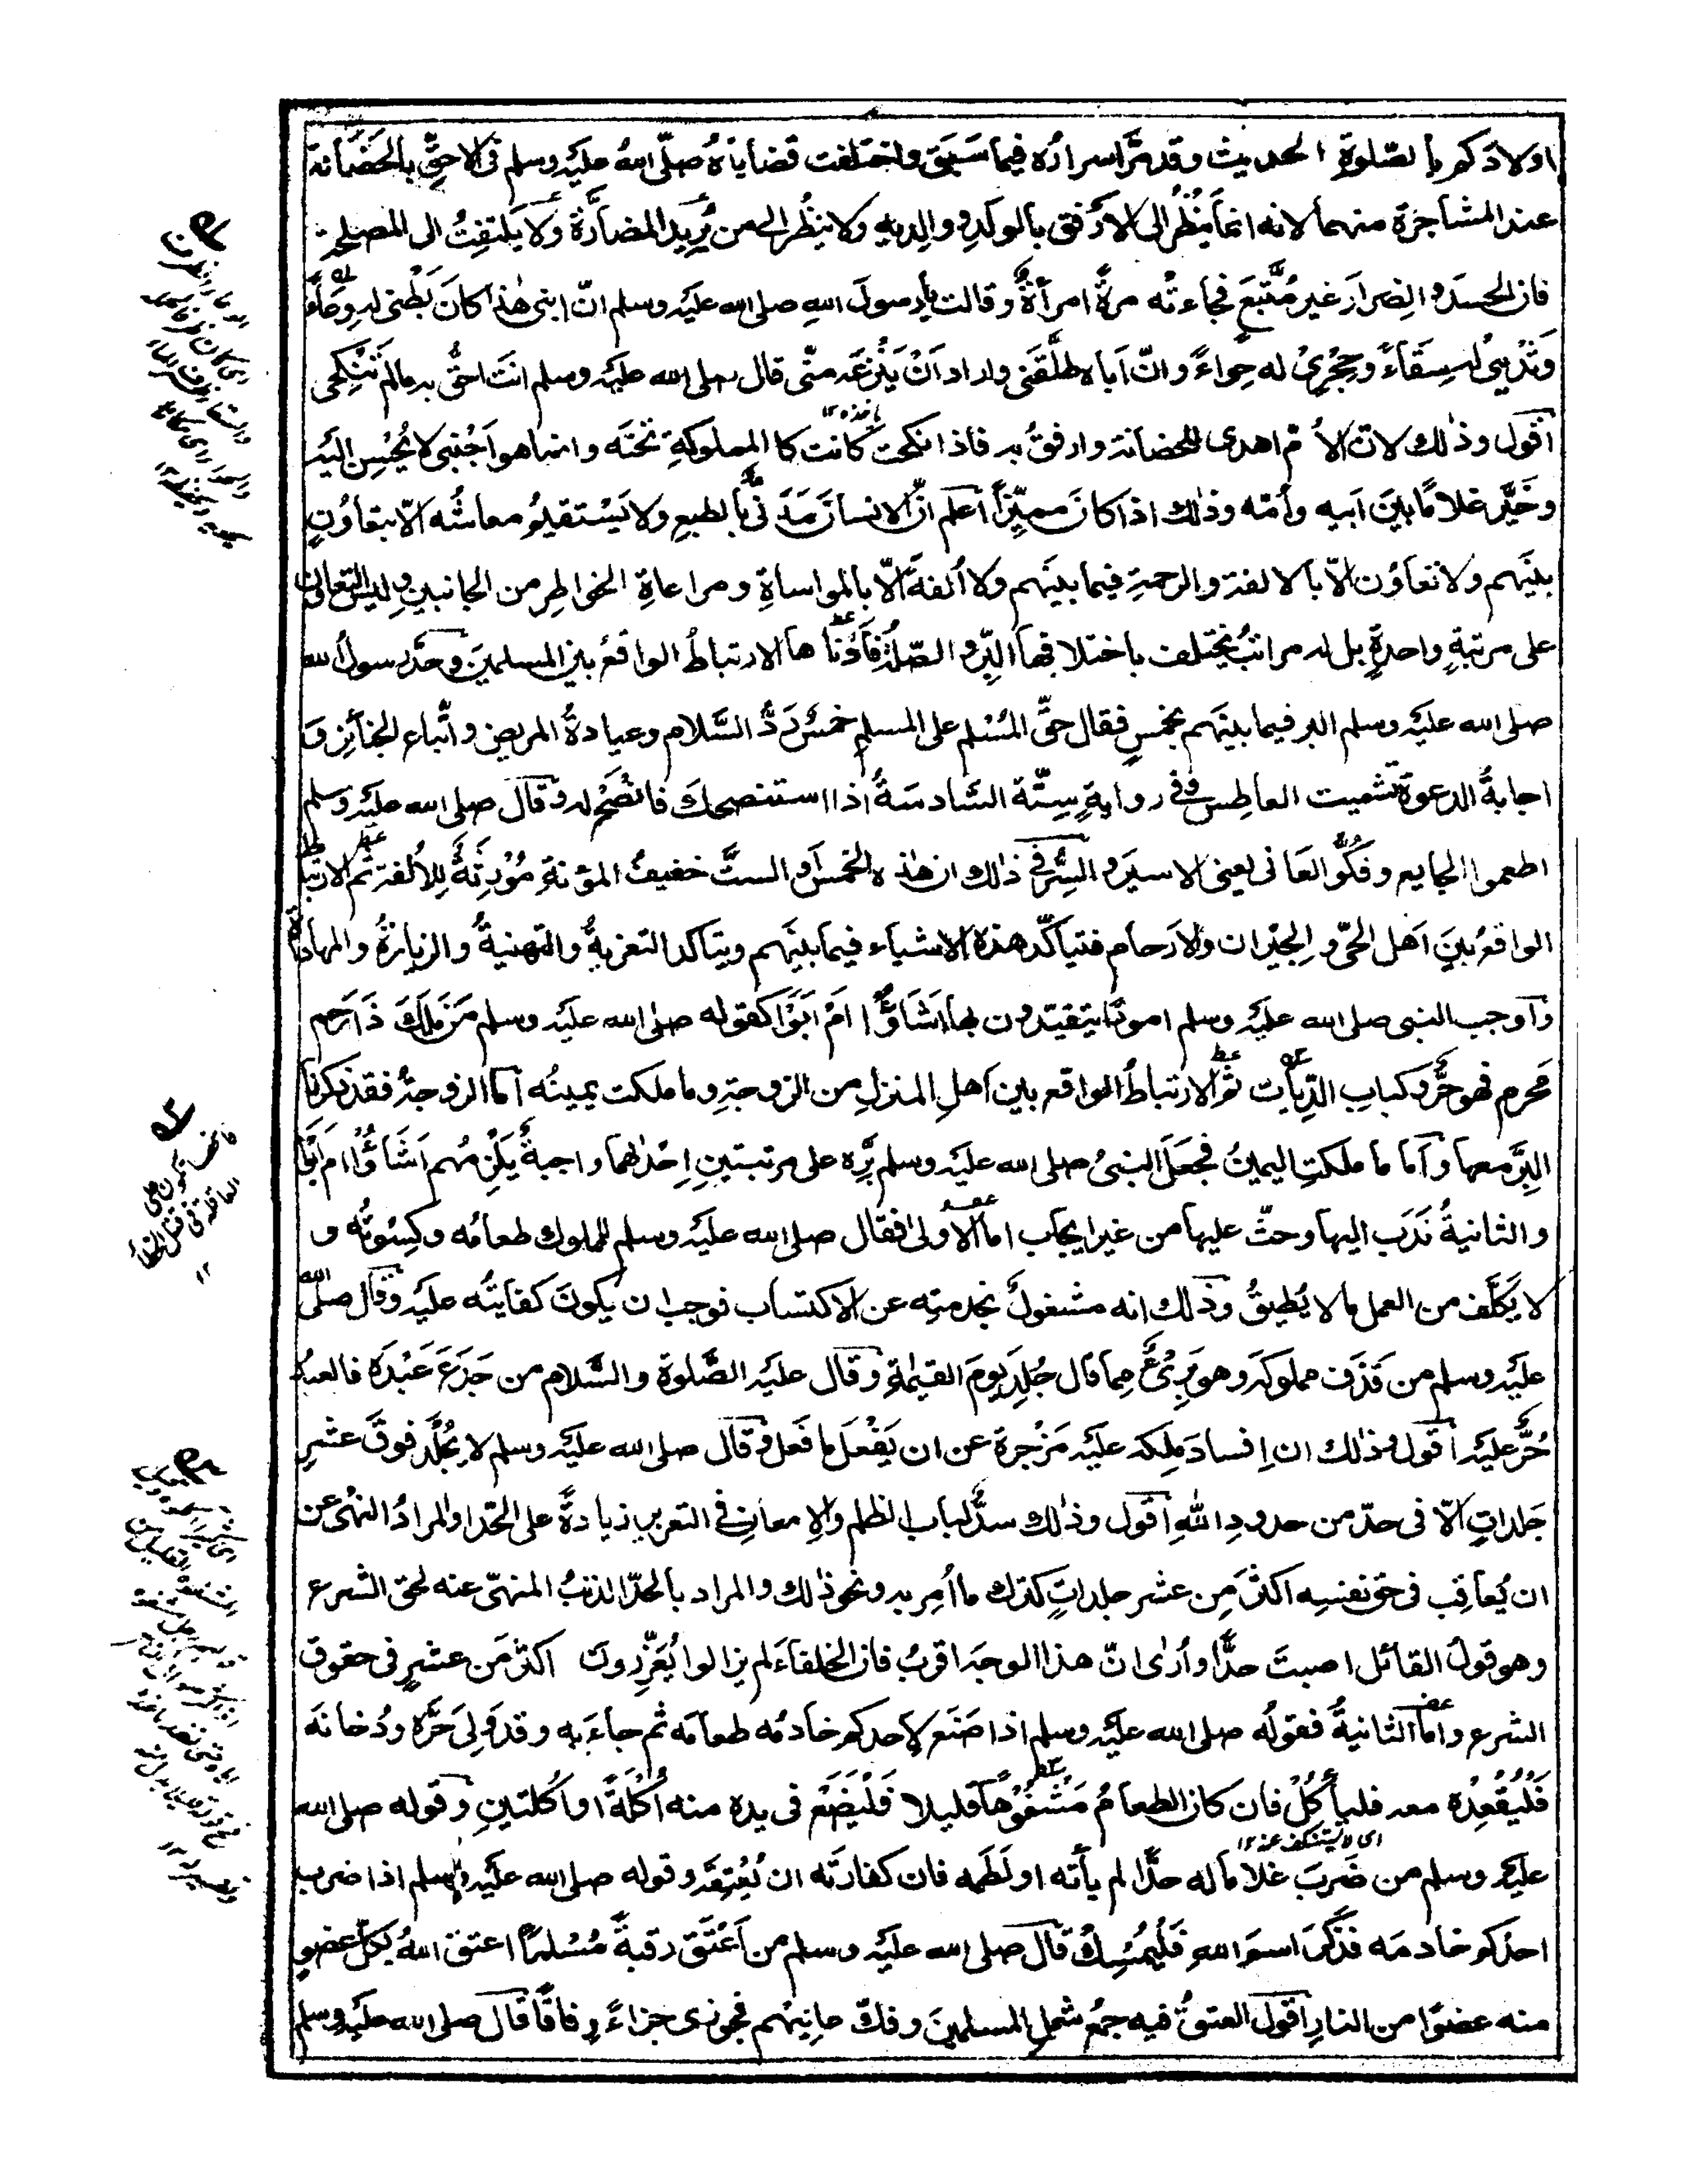 اولادكم بالصّلوةِ الحديث وقد مَرَّ اسرارُه فيما سَبَق واختلفت قضاياهُ صلّى اللهُ عليه وسلم فى الاحقّ بالحَضَانة
عند المشاجرة منهما لانه انما يَنظُرُ الى الارفق بالولد ووالِديهِ ولا ينظُر الى من يُريد المضارّةَ ولا يَلتفِتُ الى المصلحة
فان الحسدَ والضِرارَ غير مُتَّبَعٍ فجاءته مرةً امرأةٌ وقالت يا رسولَ اللهِ صلى الله عليه وسلم انّ ابنى هٰذا كانَ بَطْنى له وِعَاءً
وثَدْيى له سِقَاءً وحِجْرِىْ له حِواءً وانّ اباه طلَّقَنى واراد اَنْ يَنْزِعَه منّى قال صلى الله عليه وسلم انتَ احقُّ به مالم تَنْكِحى
اقول وذٰلك لان الاُمّ اهدى للحضانة وارفقُ به فاذا نكحت كانت كالمملوكةِ تحتَه وانما هو اَجْنبى لا يُحْسِن اليه
وخَيَّر غلامًا بينَ اَبيه واُمّه وذٰلك اذا كانَ مميِّزًا اعلم انّ الانسانَ مَدَنىٌّ بالطبعِ ولا يَسْتقيمُ معاشُه الّا بتعاوُنٍ
بينَهم ولا تعاوُن الّا بالالفة والرحمةِ فيما بينَهم ولا اُلفةَ الّا بالمواساةِ ومراعاةِ الخواطِرِ من الجانبينِ وليس التعاون
على مرتبةٍ واحدةٍ بل له مراتبُ يختلف باختلافِها البِرُّ والصّلةُ فاَدْناها الارتباطُ الواقعُ بين المسلمينَ وحدَّ رسولُ الله
صلى الله عليه وسلم البر فيما بينَهم بخمسٍ فقال حقّ المُسْلم على المسلم خمسٌ رَدُّ السَّلام وعيادةُ المريض واتّباع الجنائزِ وَ
اجابةُ الدعوة وتشميت العاطِس وفى روايةٍ سِتّة السَّادسةُ اذا استنصحكَ فانْصَحْ له وقال صلى الله عليه وسلم
اطعموا الجايع وفُكّوا العَانى يعنى الاسيرَ والسِّر فى ذالك ان هٰذه الخمسَ او الستَّ خفيفُ المؤنةِ مُوْرِثَةٌ لِلاُلفة ثم الارتباطُ
الواقعُ بينَ اَهل الحَىّ والجِيْران والارَحام فتيأكّد هٰذه الاشياء فيما بينَهم ويتاكد التعزيةُ والتهنيةُ والزيارةُ والمهاداةُ
وآوجب النبى صلى الله عليه وسلم امورًا يتقيّدون بها شَاؤُا امْ اَبَوْا كقوله صلى الله عليه وسلم مَن مَلَكَ ذَا رَحِم
مَحرم فهو حُرٌّ وكبابِ الدِّيَات ثم الارتباطُ الواقع بين اَهلِ المنزلِ من الزوجةِ وما ملكت يمينُه اَمّا الزوجةُ فقد ذكرنا
البِرَّ معها واَما ما ملكتِ اليمينُ فجَعَلَ النبىُ صلى الله عليه وسلم بِرَّه على مرتبتينِ اِحْدٰهما واجبةٌ يَلْزِمُهم اَشَاؤُا ام اَبَوْا
والثانيةُ نَدَب اليها وحثّ عليها من غير ايجاب اما الاولىٰ فقال صلى الله عليه وسلم للمملوك طعامُه وكِسْوتُه و
لا يَكلَّف من العمل ما لا يُطيقُ وذٰلك انه مشغولٌ بخدمتِه عن الاكتساب فوجب ان يكونَ كفايتُه عليه وقال صلّى الله
عليه وسلم من قَذَف مملوكَه وهو بَرِئٌ مما قال جُلِدَ يومَ القيٰمةِ وقال عليه الصَّلوة والسَّلام من جَدَعَ عَبْدَه فالعبدُ
حُرٌّ عليه اَقول وذٰلك ان اِفسادَ مِلكِه عليه مَزْجرة عن ان يَفْعلَ ما فَعل وقال صلى الله عليه وسلم لا يُجْلَد فوقَ عشرِ
جَلداتٍ الّا فى حدّ من حدودِ اللهِ اَقول وذٰلك سدٌّ لباب الظلم والامعانِ فى التعزير زيادةً على الحدّ او المرادُ النهىُ عن
ان يُعاقِب فى حق نفسِه اكثرَ مِن عشر جلداتٍ كترك ما اُمِر به ونحو ذٰلك والمراد بالحدّ الذنبُ المنهىّ عنه لحق الشرع
وهو قولُ القائل اصبتُ حدًّا واُرىٰ انّ هذا الوجهَ اقربُ فان الخلفاءَ لم يزالوا يُعَزِّرونَ اكثرَ من عشرٍ فى حقوق
الشرع واما الثانيةُ فقولُه صلى الله عليه وسلم اذا صَنَع لِاحدكم خادمُه طعامَه ثم جاءَ به وقد وَلِىَ حَرَّه ودُخانَه
فَلْيُقْعِدْه معه فليأكُلْ فان كان الطعامُ مَشْفُوْهًا قليلا فَلْيَضَعْ فى يدِه منه اُكْلَةً او اُكلتينِ وقوله صلى الله
عليه وسلم من ضَرَبَ غلاما له حدًّا لم يأته او لَطَمه فان كفارتَه ان يُعْتِقَه وقوله صلى الله عليه وسلم اذا ضرب
احدُكم خادمَه فذَكَرَ اسمَ اللهِ فَلْيُمْسِكْ قال صلى الله عليه وسلم من اَعْتَق رقبةً مُسْلمةً اعتق اللهُ بكلّ عضوٍ
منه عضوًا من النارِ اقول العتقُ فيه جمعُ شملِ المسلمينَ وفكّ عانِيْهم فجوزى جزاءً وِفاقًا قال صلى الله عليه وسلم